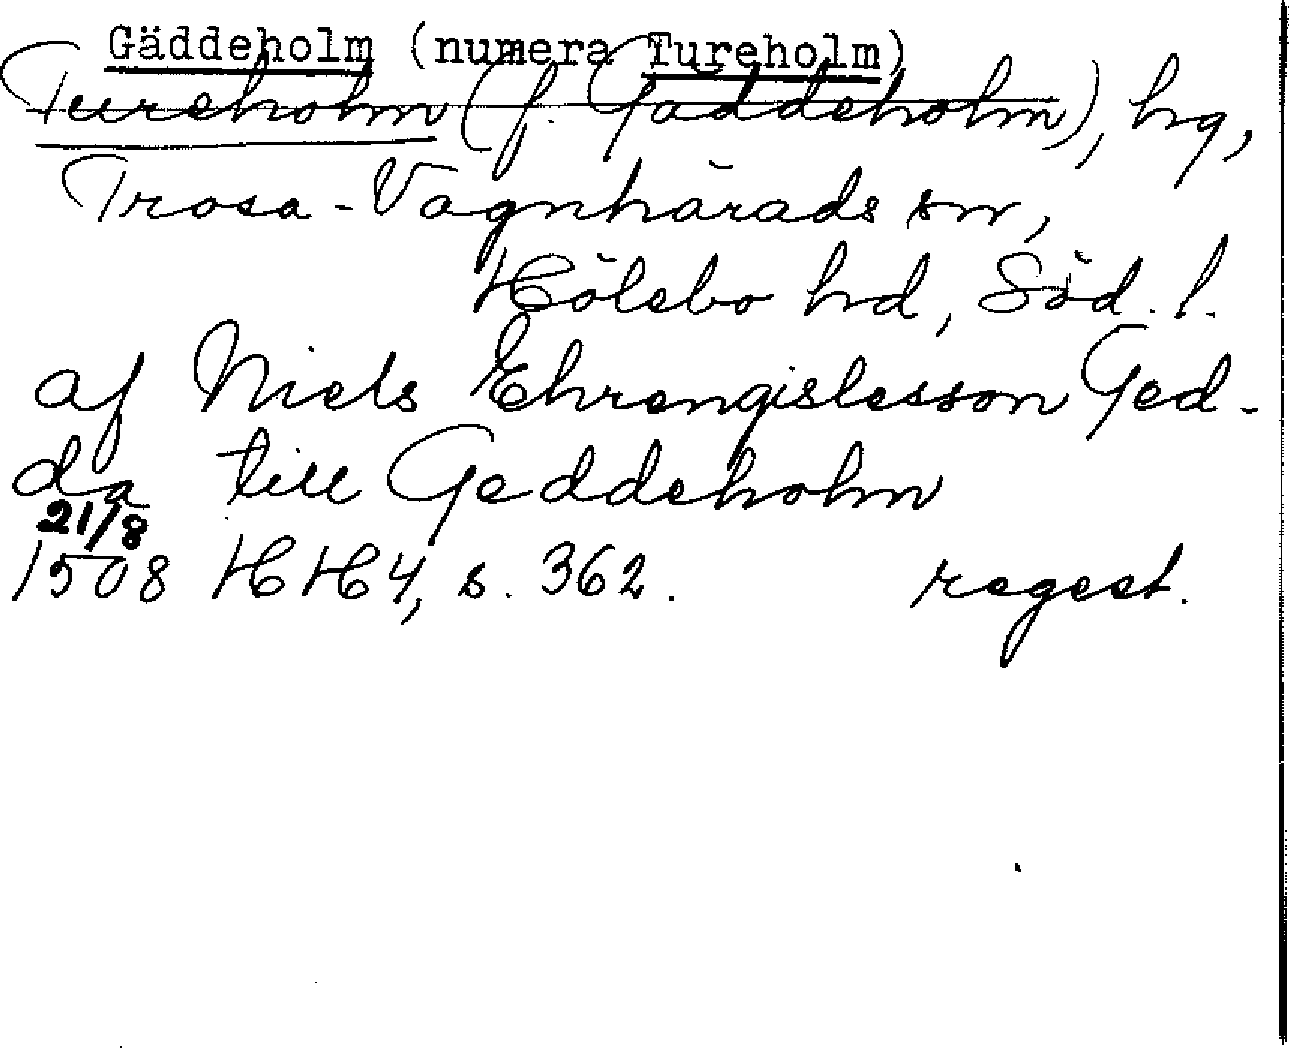 Gäddeholm (numera Tureholm)
Tureholm (f. Gäddeholm), hg,
Trosa-Vagnhärads sn,
Hölebo hd, Söd. l.
af Niels Ehrengislesson Ged-
da till Geddeholm
21/8
1508 HH4, s. 362. regest.